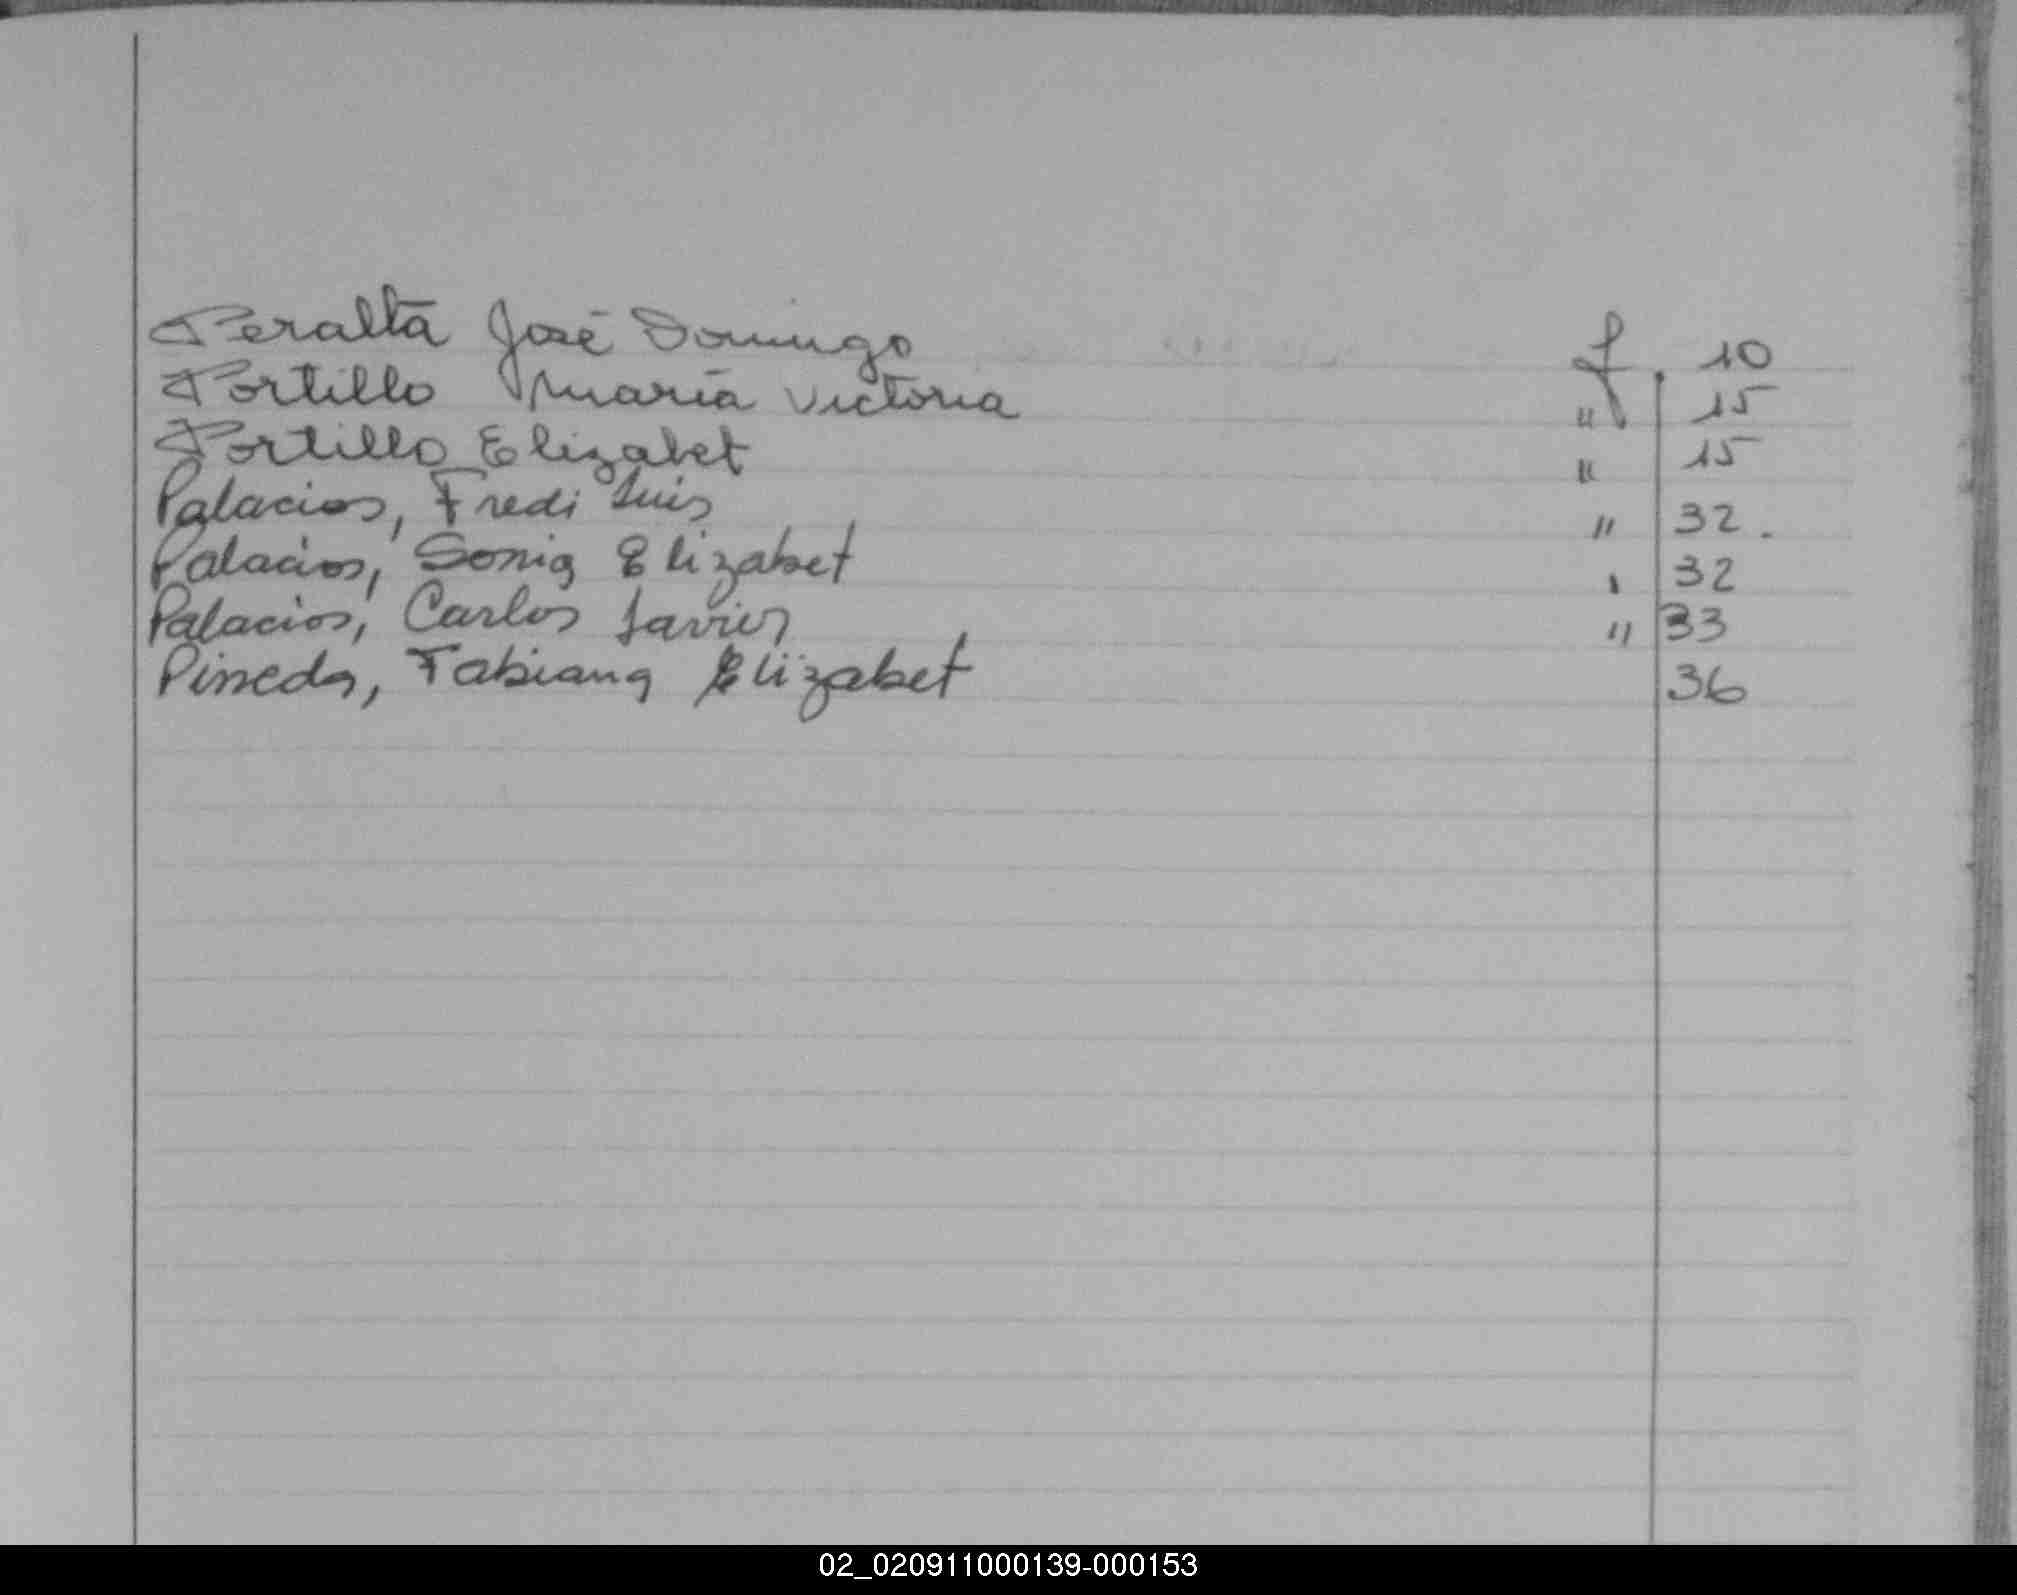 Peralta José Domingo f. 10
Portillo María Victoria " 15
Portillo Elizabet " 15
Palacios, Fredi Luis " 32.
Palacios, Sonia Elizabet " 32
Palacios, Carlos Javier " 33
Pineda, Fabiana Elizabet 36
02_020911000139-000153